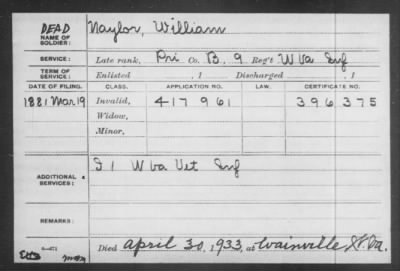 DEAD
NAME OF SOLDIER: Naylor, William
SERVICE: Late rank, Pri Co. B, 9 Reg't W Va Inf
TERM OF SERVICE: Enlisted , 1 Discharged , 1
DATE OF FILING. CLASS. APPLICATION NO. LAW. CERTIFICATE NO.
1881 Mar 19 Invalid, 417 961 396 375
Widow,
Minor,
ADDITIONAL SERVICES: I 1 W Va Vet Inf
REMARKS:
6—671
Died April 30, 1933, at W.Va.